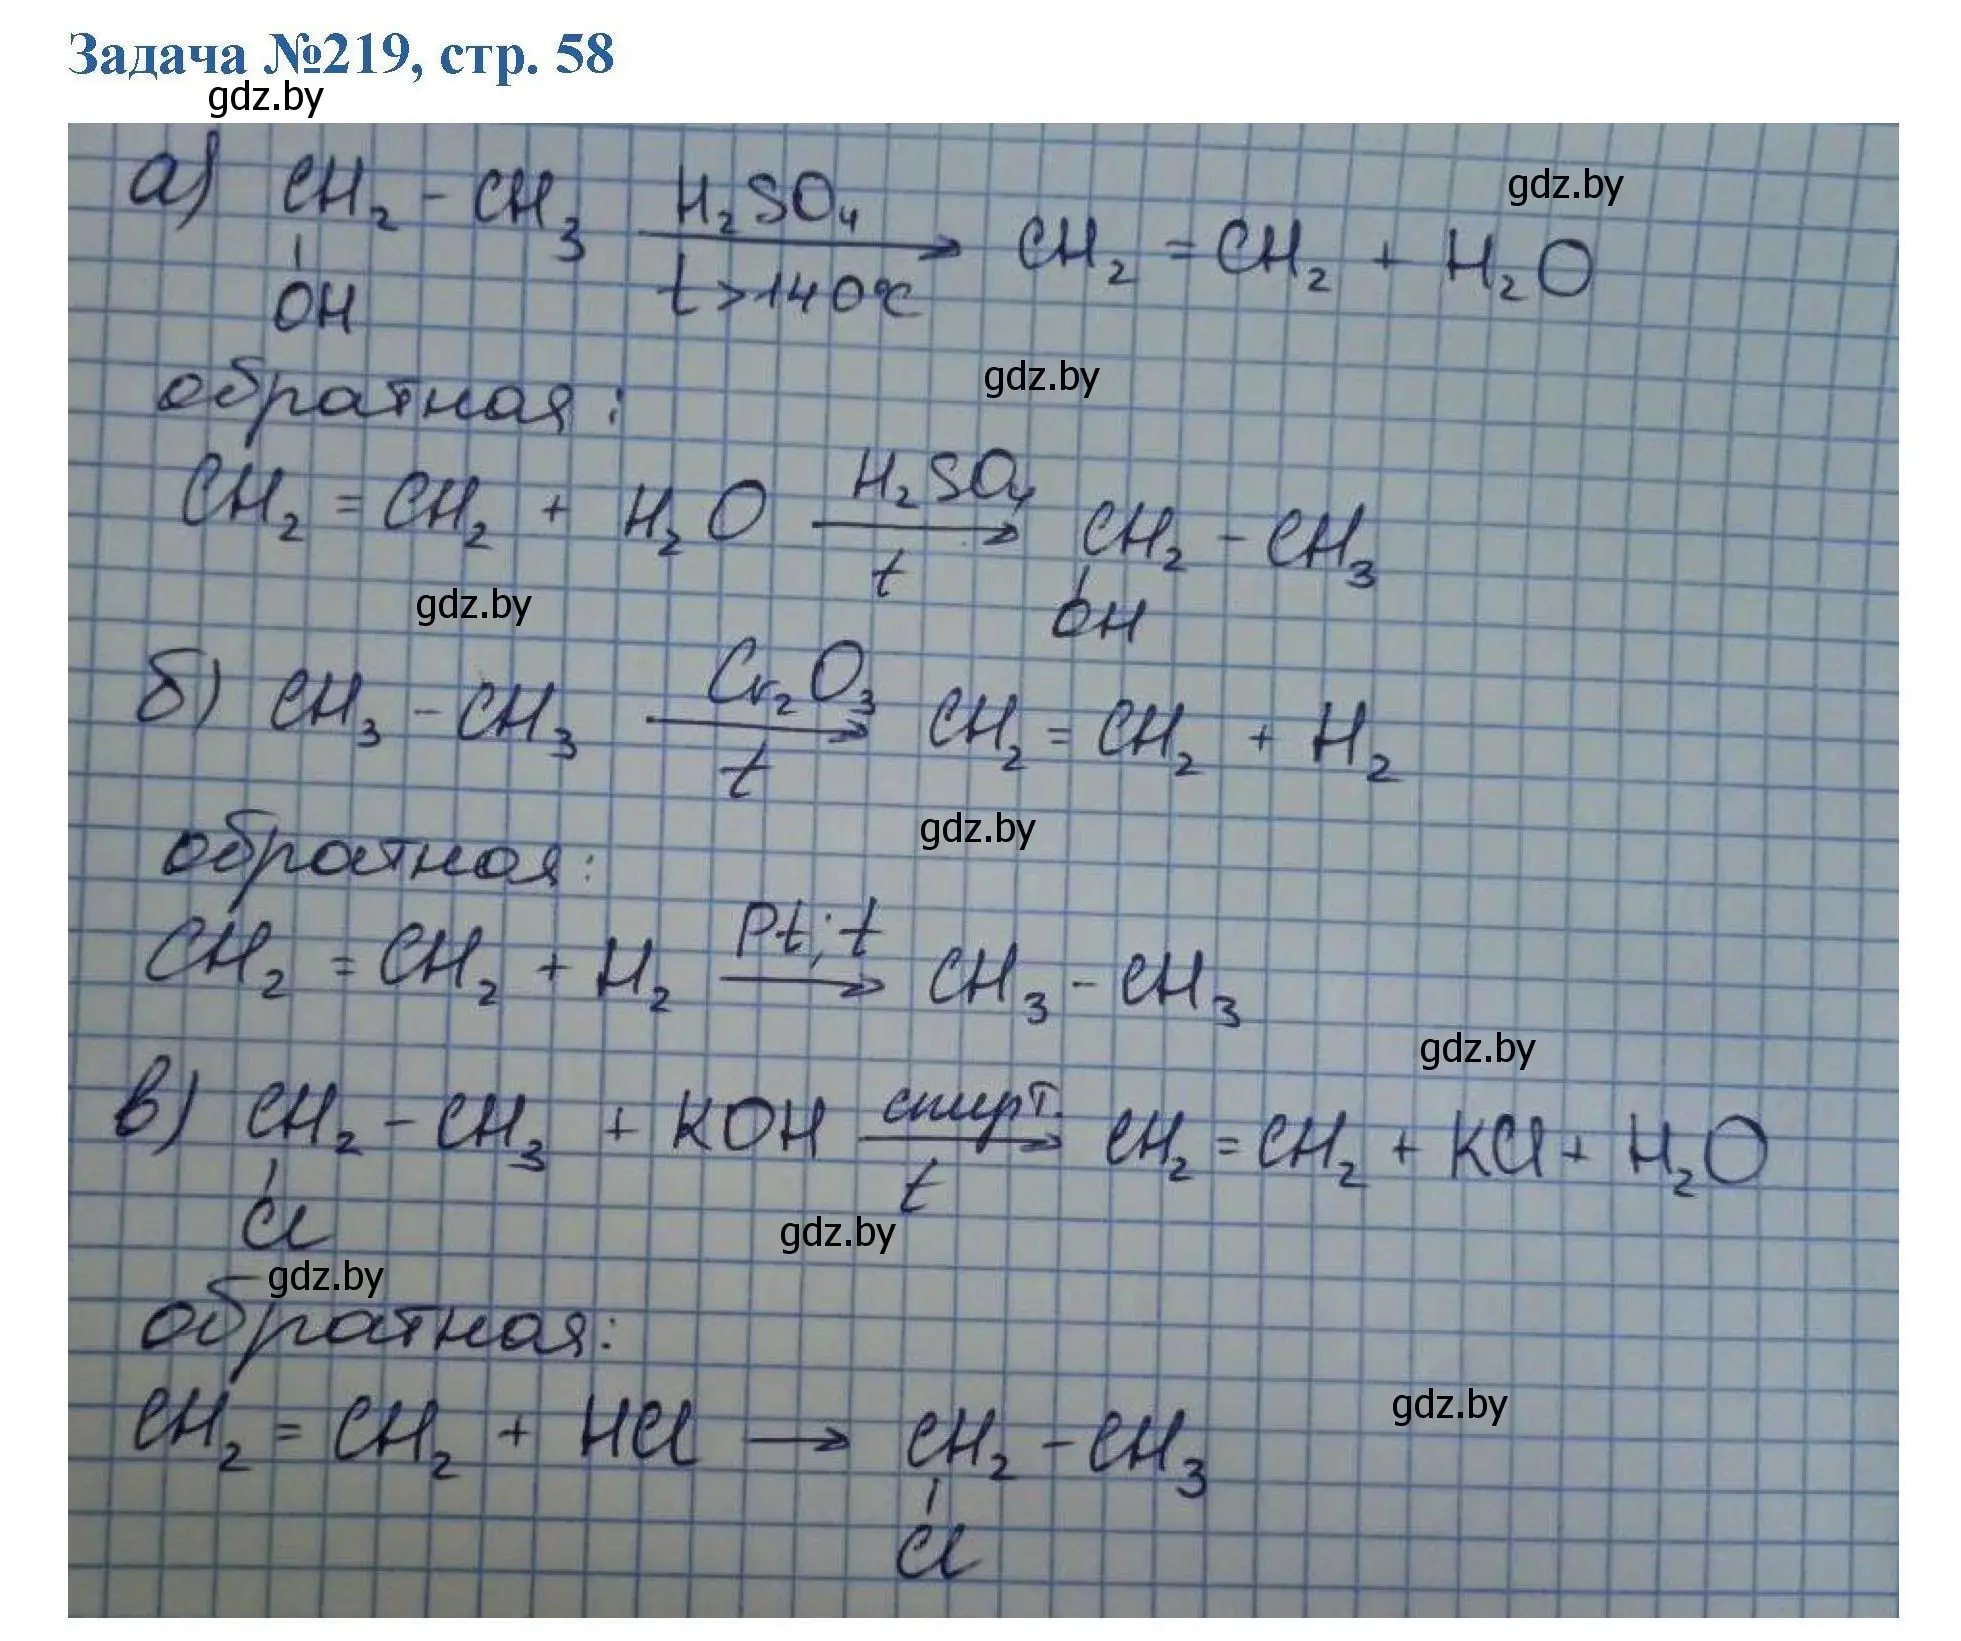 Задача №219, стр. 58
gdz.by
а) CH₂ - CH₃ H₂SO₄ → t > 140°C CH₂ = CH₂ + H₂O
OH
gdz.by
обратная:
gdz.by
CH₂ = CH₂ + H₂O H₂SO₄ → t CH₂ - CH₃
OH
gdz.by
б) CH₃ - CH₃ Cr₂O₃ → t CH₂ = CH₂ + H₂
gdz.by
обратная:
CH₂ = CH₂ + H₂ Pt; t → CH₃ - CH₃
gdz.by
в) CH₂ - CH₃ + KOH спирт. → t CH₂ = CH₂ + KCl + H₂O
Cl
gdz.by
gdz.by
обратная:
gdz.by
CH₂ = CH₂ + HCl → CH₂ - CH₃
Cl